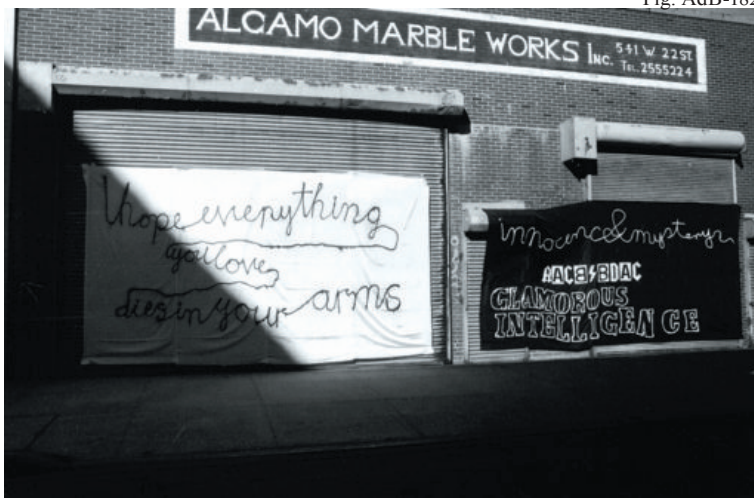 Fig. AdB-182
ALCAMO MARBLE WORKS INC. 541 W. 22 ST.
TEL. 2555224
I hope everything
you love
dies in your arms
innocence & mystery
AACB⚡BDAC
GLAMOROUS
INTELLIGENCE